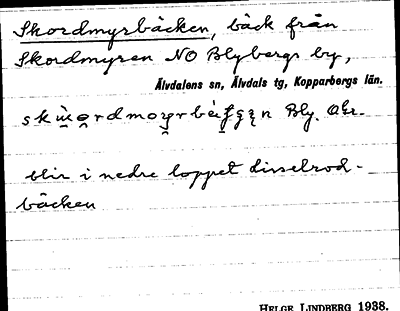 Skordmyrbäcken, bäck från
Skordmyren NO Blybergs by,
Älvdalens sn, Älvdals tg, Kopparbergs län.
Bly.
blir i nedre loppet Disselrod-
bäcken
HELGE LINDBERG 1938.